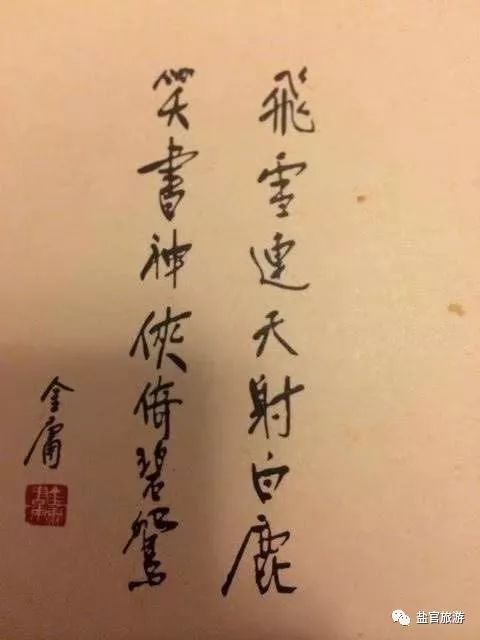 飛雪連天射白鹿
笑書神俠倚碧鴛
金庸
盐官旅游